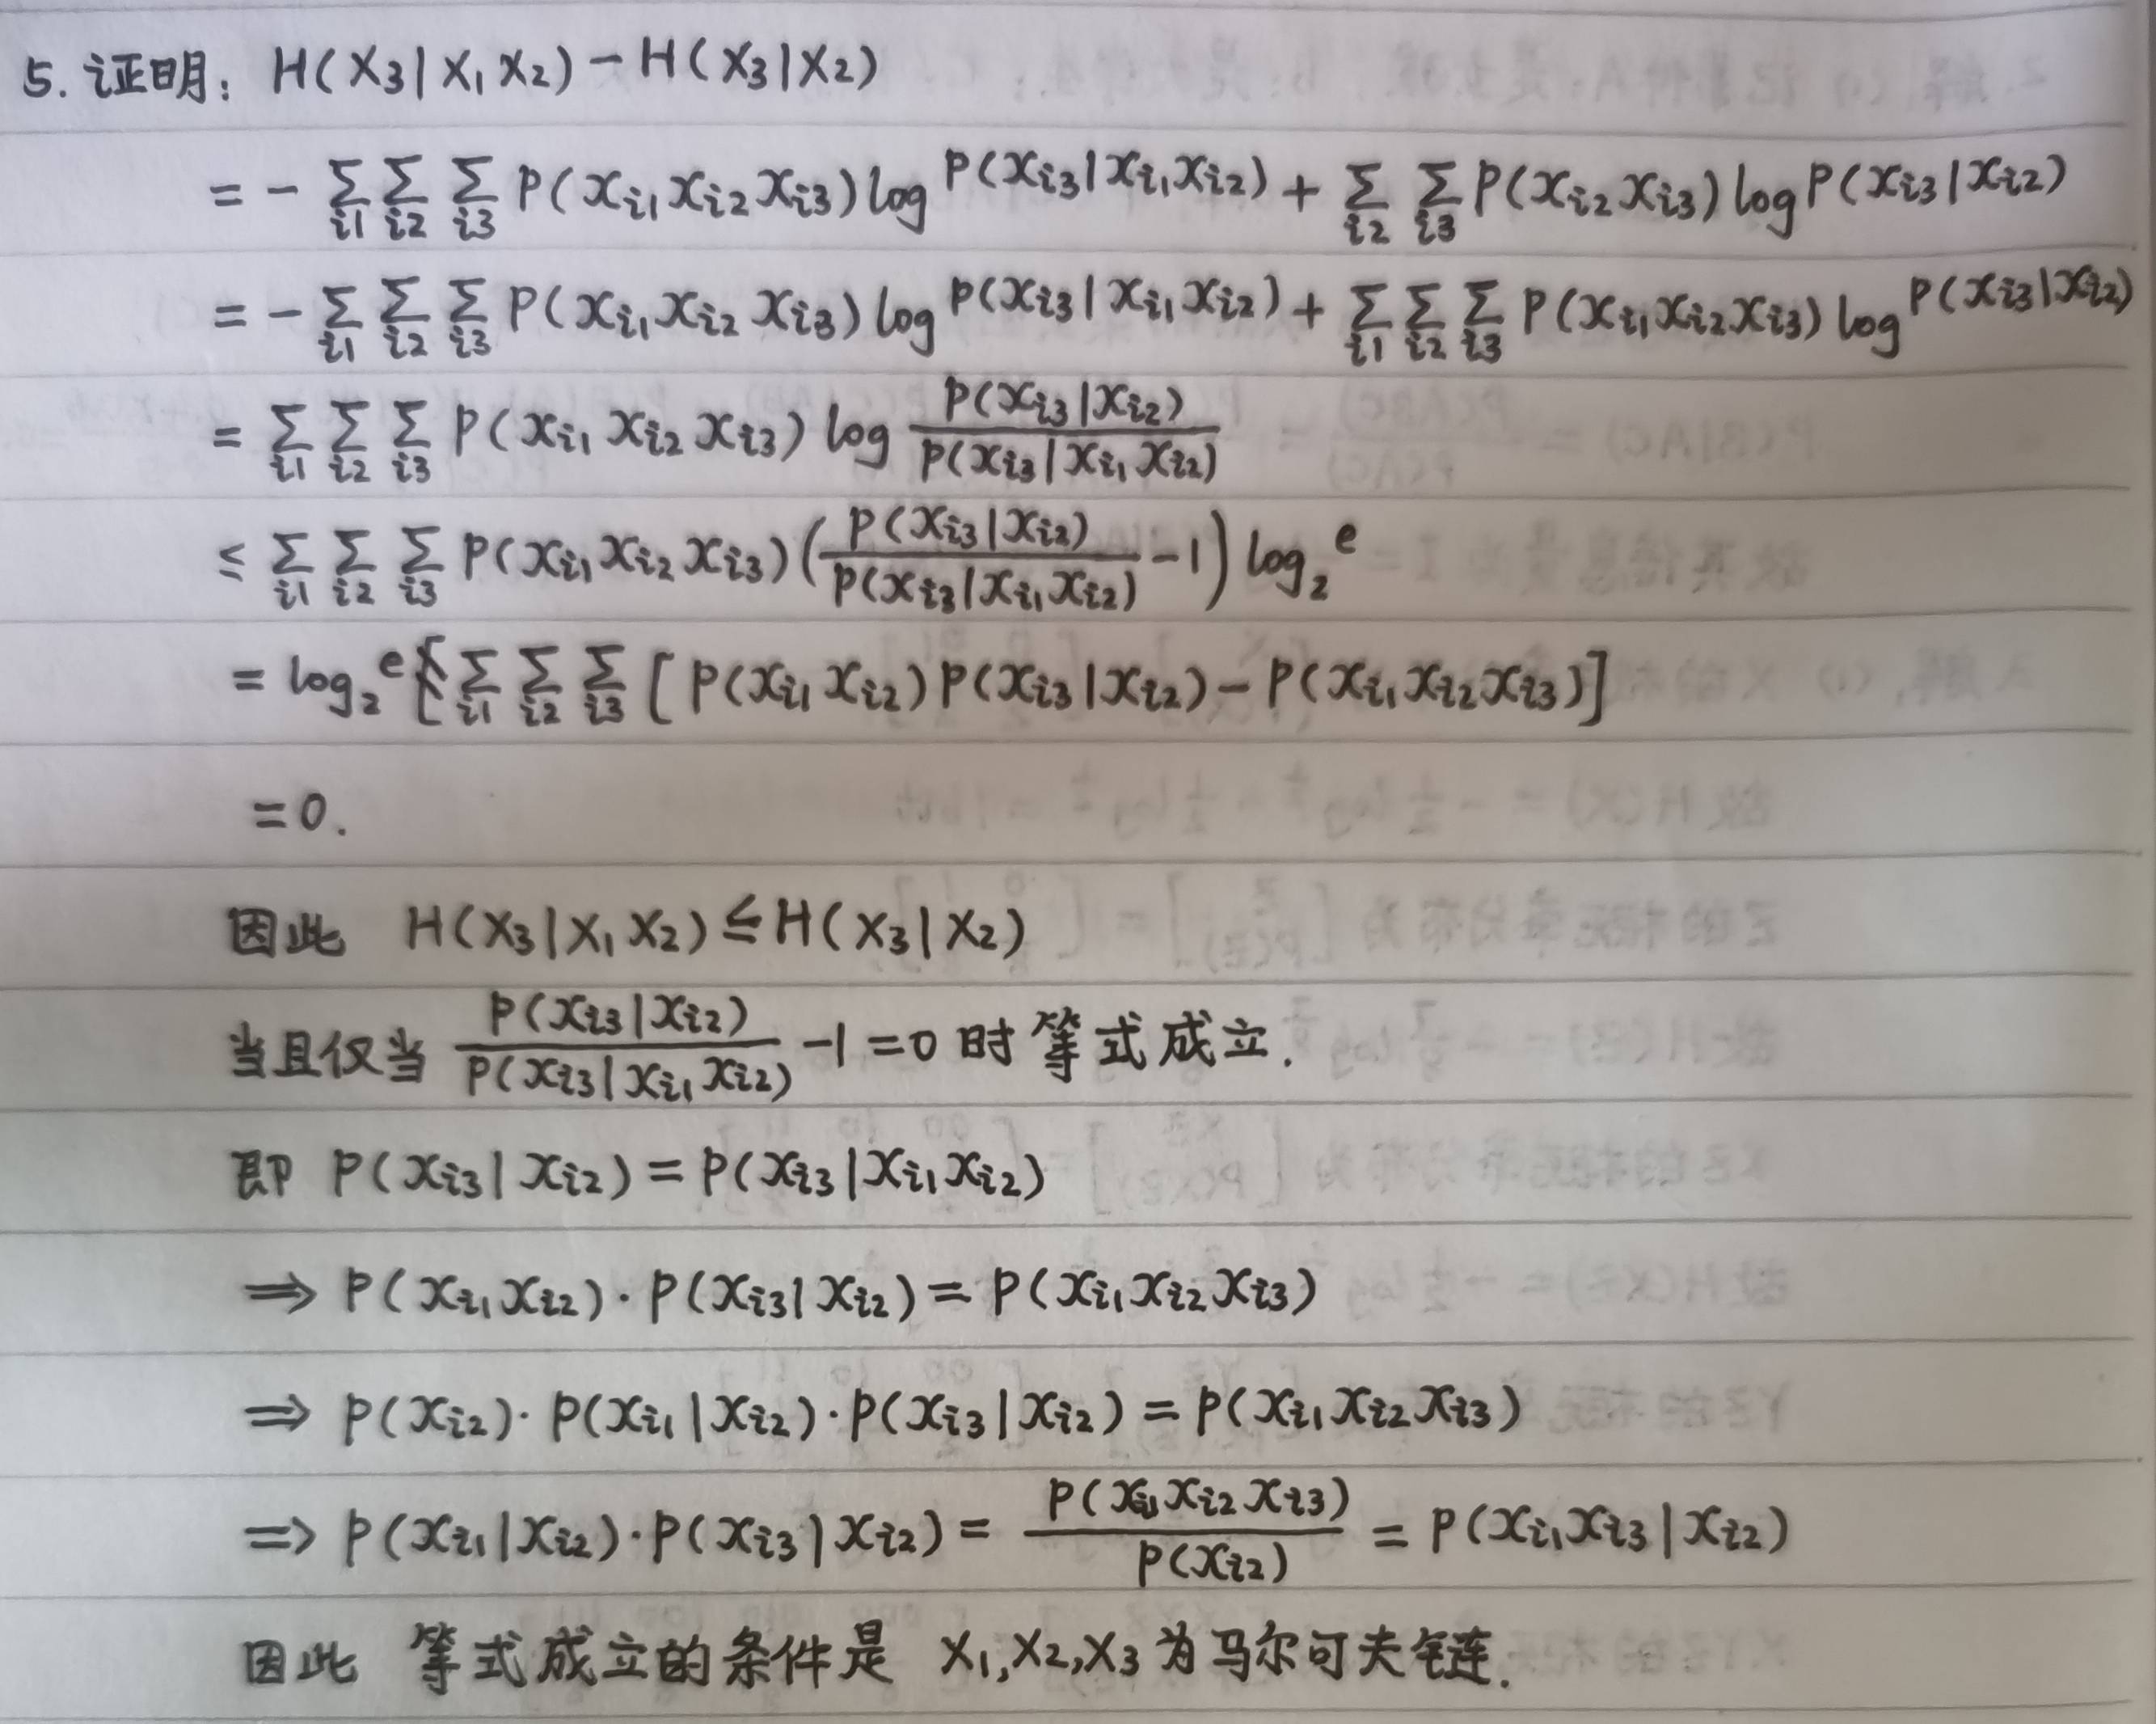 5. 证明: H(X₃|X₁X₂) - H(X₃|X₂)
= - Σ_{i1} Σ_{i2} Σ_{i3} P(x_{i1}x_{i2}x_{i3}) log P(x_{i3}|x_{i1}x_{i2}) + Σ_{i2} Σ_{i3} P(x_{i2}x_{i3}) log P(x_{i3}|x_{i2})
= - Σ_{i1} Σ_{i2} Σ_{i3} P(x_{i1}x_{i2}x_{i3}) log P(x_{i3}|x_{i1}x_{i2}) + Σ_{i1} Σ_{i2} Σ_{i3} P(x_{i1}x_{i2}x_{i3}) log P(x_{i3}|x_{i2})
= Σ_{i1} Σ_{i2} Σ_{i3} P(x_{i1}x_{i2}x_{i3}) log \frac{P(x_{i3}|x_{i2})}{P(x_{i3}|x_{i1}x_{i2})}
≤ Σ_{i1} Σ_{i2} Σ_{i3} P(x_{i1}x_{i2}x_{i3}) (\frac{P(x_{i3}|x_{i2})}{P(x_{i3}|x_{i1}x_{i2})} - 1) log₂e
= log₂e Σ_{i1} Σ_{i2} Σ_{i3} [P(x_{i1}x_{i2})P(x_{i3}|x_{i2}) - P(x_{i1}x_{i2}x_{i3})]
= 0.
因此 H(X₃|X₁X₂) ≤ H(X₃|X₂)
当且仅当 \frac{P(x_{i3}|x_{i2})}{P(x_{i3}|x_{i1}x_{i2})} - 1 = 0 时等式成立.
即 P(x_{i3}|x_{i2}) = P(x_{i3}|x_{i1}x_{i2})
⇒ P(x_{i1}x_{i2})·P(x_{i3}|x_{i2}) = P(x_{i1}x_{i2}x_{i3})
⇒ P(x_{i2})·P(x_{i1}|x_{i2})·P(x_{i3}|x_{i2}) = P(x_{i1}x_{i2}x_{i3})
⇒ P(x_{i1}|x_{i2})·P(x_{i3}|x_{i2}) = \frac{P(x_{i1}x_{i2}x_{i3})}{P(x_{i2})} = P(x_{i1}x_{i3}|x_{i2})
因此 等式成立的条件是 X₁,X₂,X₃为马尔可夫链.